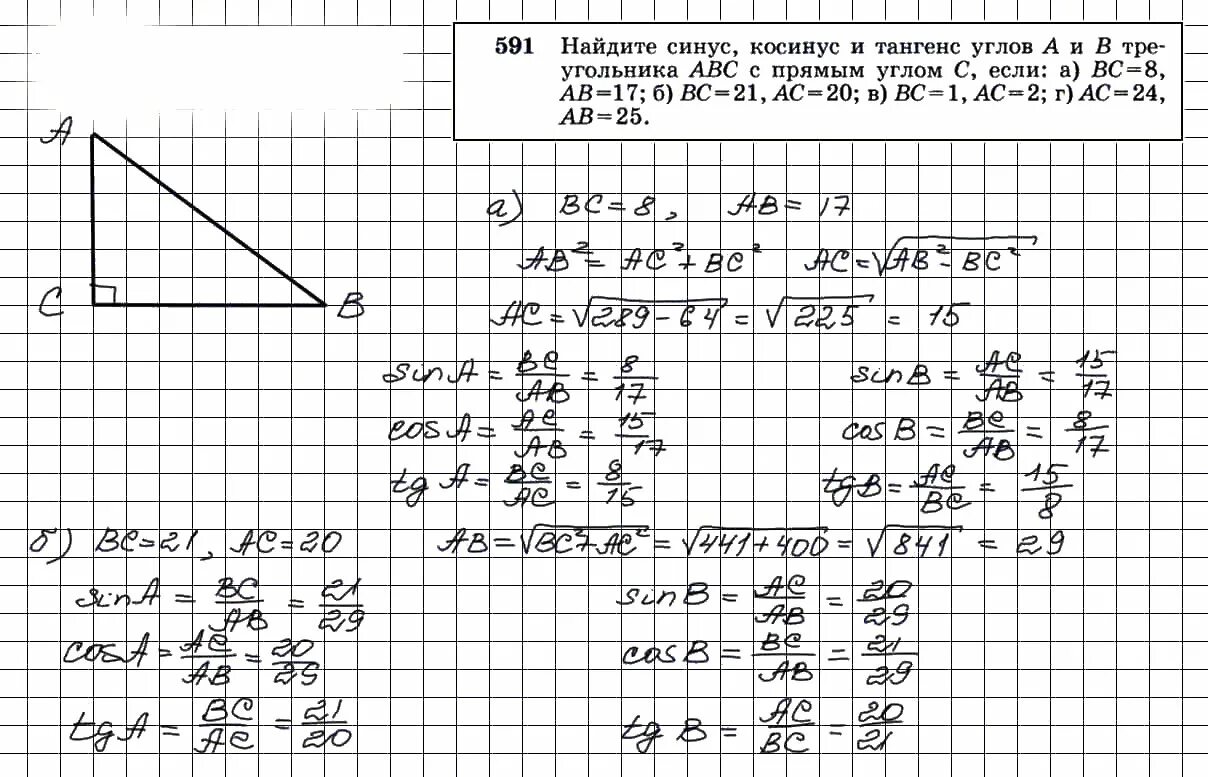 591 Найдите синус, косинус и тангенс углов A и B тре-
угольника ABC с прямым углом C, если: а) BC=8,
AB=17; б) BC=21, AC=20; в) BC=1, AC=2; г) AC=24,
AB=25.
A
C
B
а) BC = 8, AB = 17
AB² = AC² + BC² AC = √(AB² - BC²)
AC = √(289 - 64) = √225 = 15
sin A = BC/AB = 8/17 sin B = AC/AB = 15/17
cos A = AC/AB = 15/17 cos B = BC/AB = 8/17
tg A = BC/AC = 8/15 tg B = AC/BC = 15/8
б) BC = 21, AC = 20 AB = √(BC² + AC²) = √(441 + 400) = √841 = 29
sin A = BC/AB = 21/29 sin B = AC/AB = 20/29
cos A = AC/AB = 20/29 cos B = BC/AB = 21/29
tg A = BC/AC = 21/20 tg B = AC/BC = 20/21